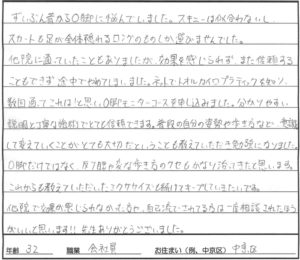 ずいぶん昔からO脚に悩んでしました。スキニーは似合わないし、
スカートも足が全体隠れるロングのものしか選びませんでした。
他院に通ってたこともありましたが、効果を感じられず、また信頼する
こともできず途中でやめてしまいました。ネットでトオルカイロプラクティックを知り、
数回通ってこれは!と思い、O脚モニターコースを申し込みました。分かりやすい
説明と丁寧な施術でとても信頼できます。普段の自分の姿勢や歩き方など、意識
して変えていくことがとても大切だということも教えていただき勉強になりました。
O脚だけではなく、反り腰や変な歩き方のクセもかなり治ってきたと思います。
これからも教えていただいたエクササイズを続けてキープしていきたいです。
他院で効果が感じられなかった方や、自己流でされてる方は一度相談されたほう
がいいと思います!!先生ありがとうございました。
年齢 32 職業 会社員 お住まい(例、中京区) 中京区